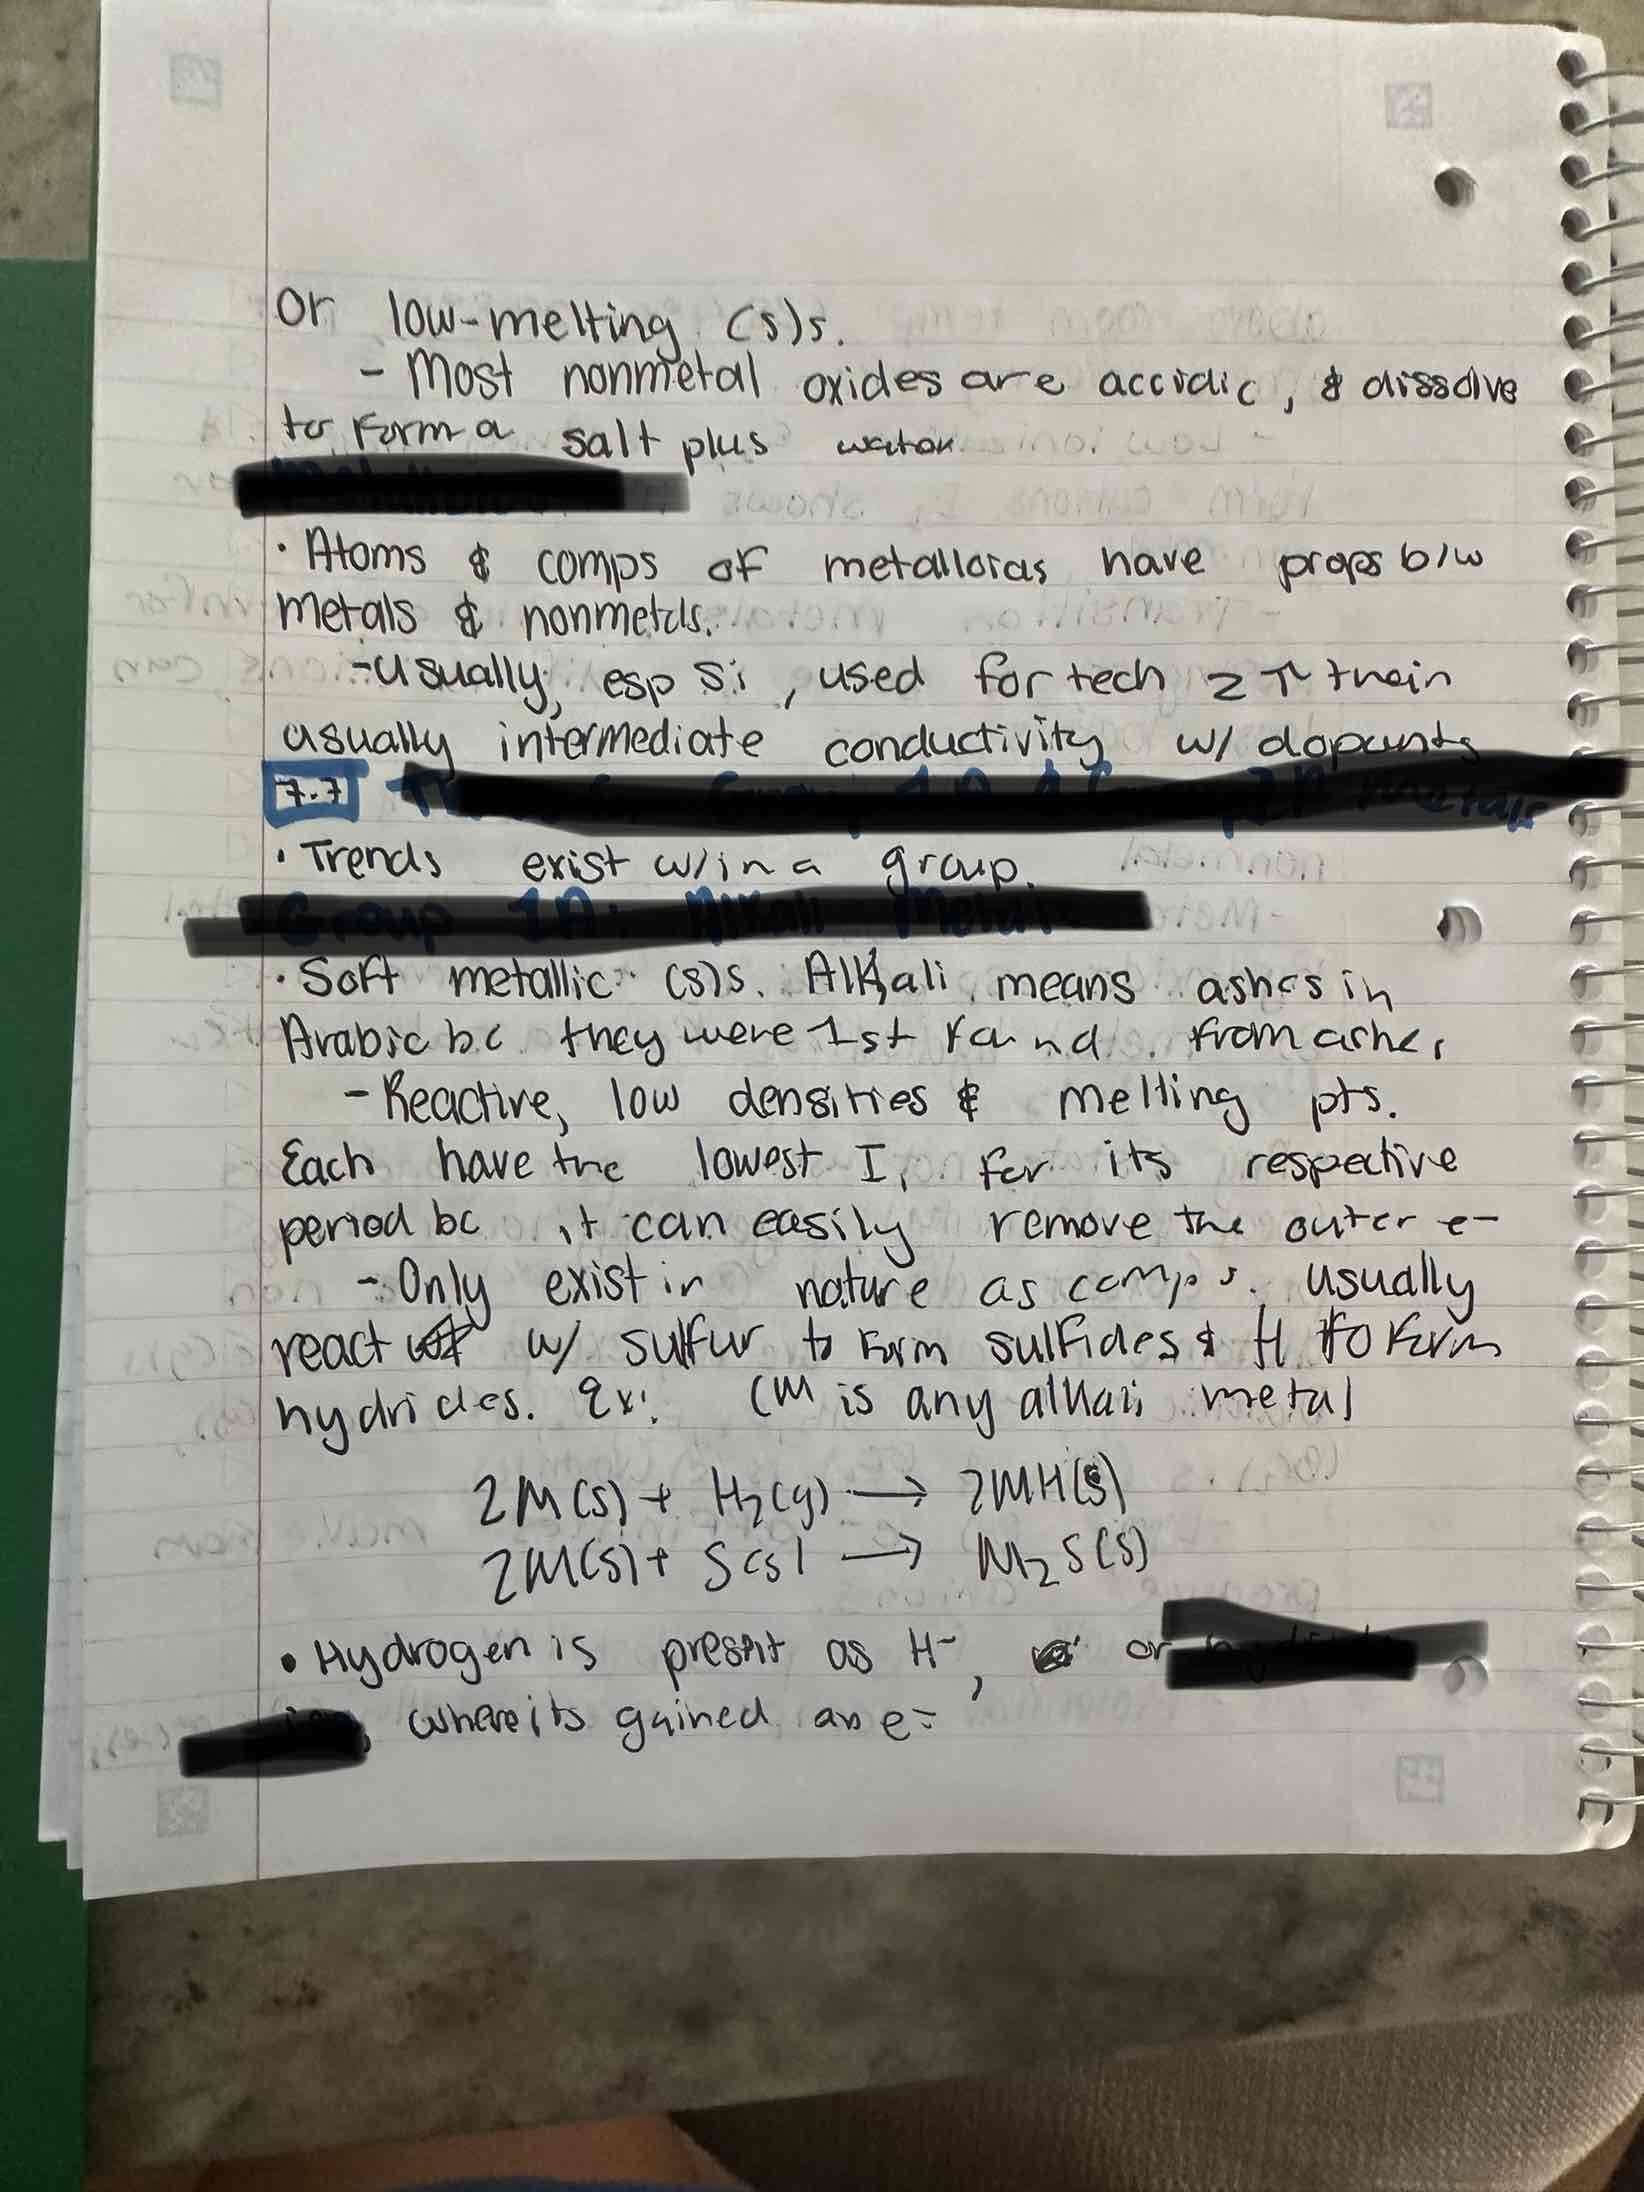 or low-melting (s)s.
- Most nonmetal oxides are accidic, & dissolve
to form a salt plus water
· Atoms & comps of metalloids have props b/w
metals & nonmetals.
- Usually, esp Si, used for tech 2 ↑ their
usually intermediate conductivity w/ dopants
7.7 metals
· Trends exist w/in a group.
Group 1A: Alkali Metals
· Soft metallic (s)s. Alkali means ashes in
Arabic bc they were 1st found from ashes
- Reactive, low densities & melting pts.
Each have the lowest I₁ for its respective
period bc it can easily remove the outer e-
- Only exist in nature as comps. usually
react w/ sulfur to form sulfides & H to form
hydrides. Ex: (M is any alkali metal
2M(s) + H₂(g) → 2MH(s)
2M(s) + S(s) → M₂S(s)
• Hydrogen is present as H⁻, or
, where its gained an e-